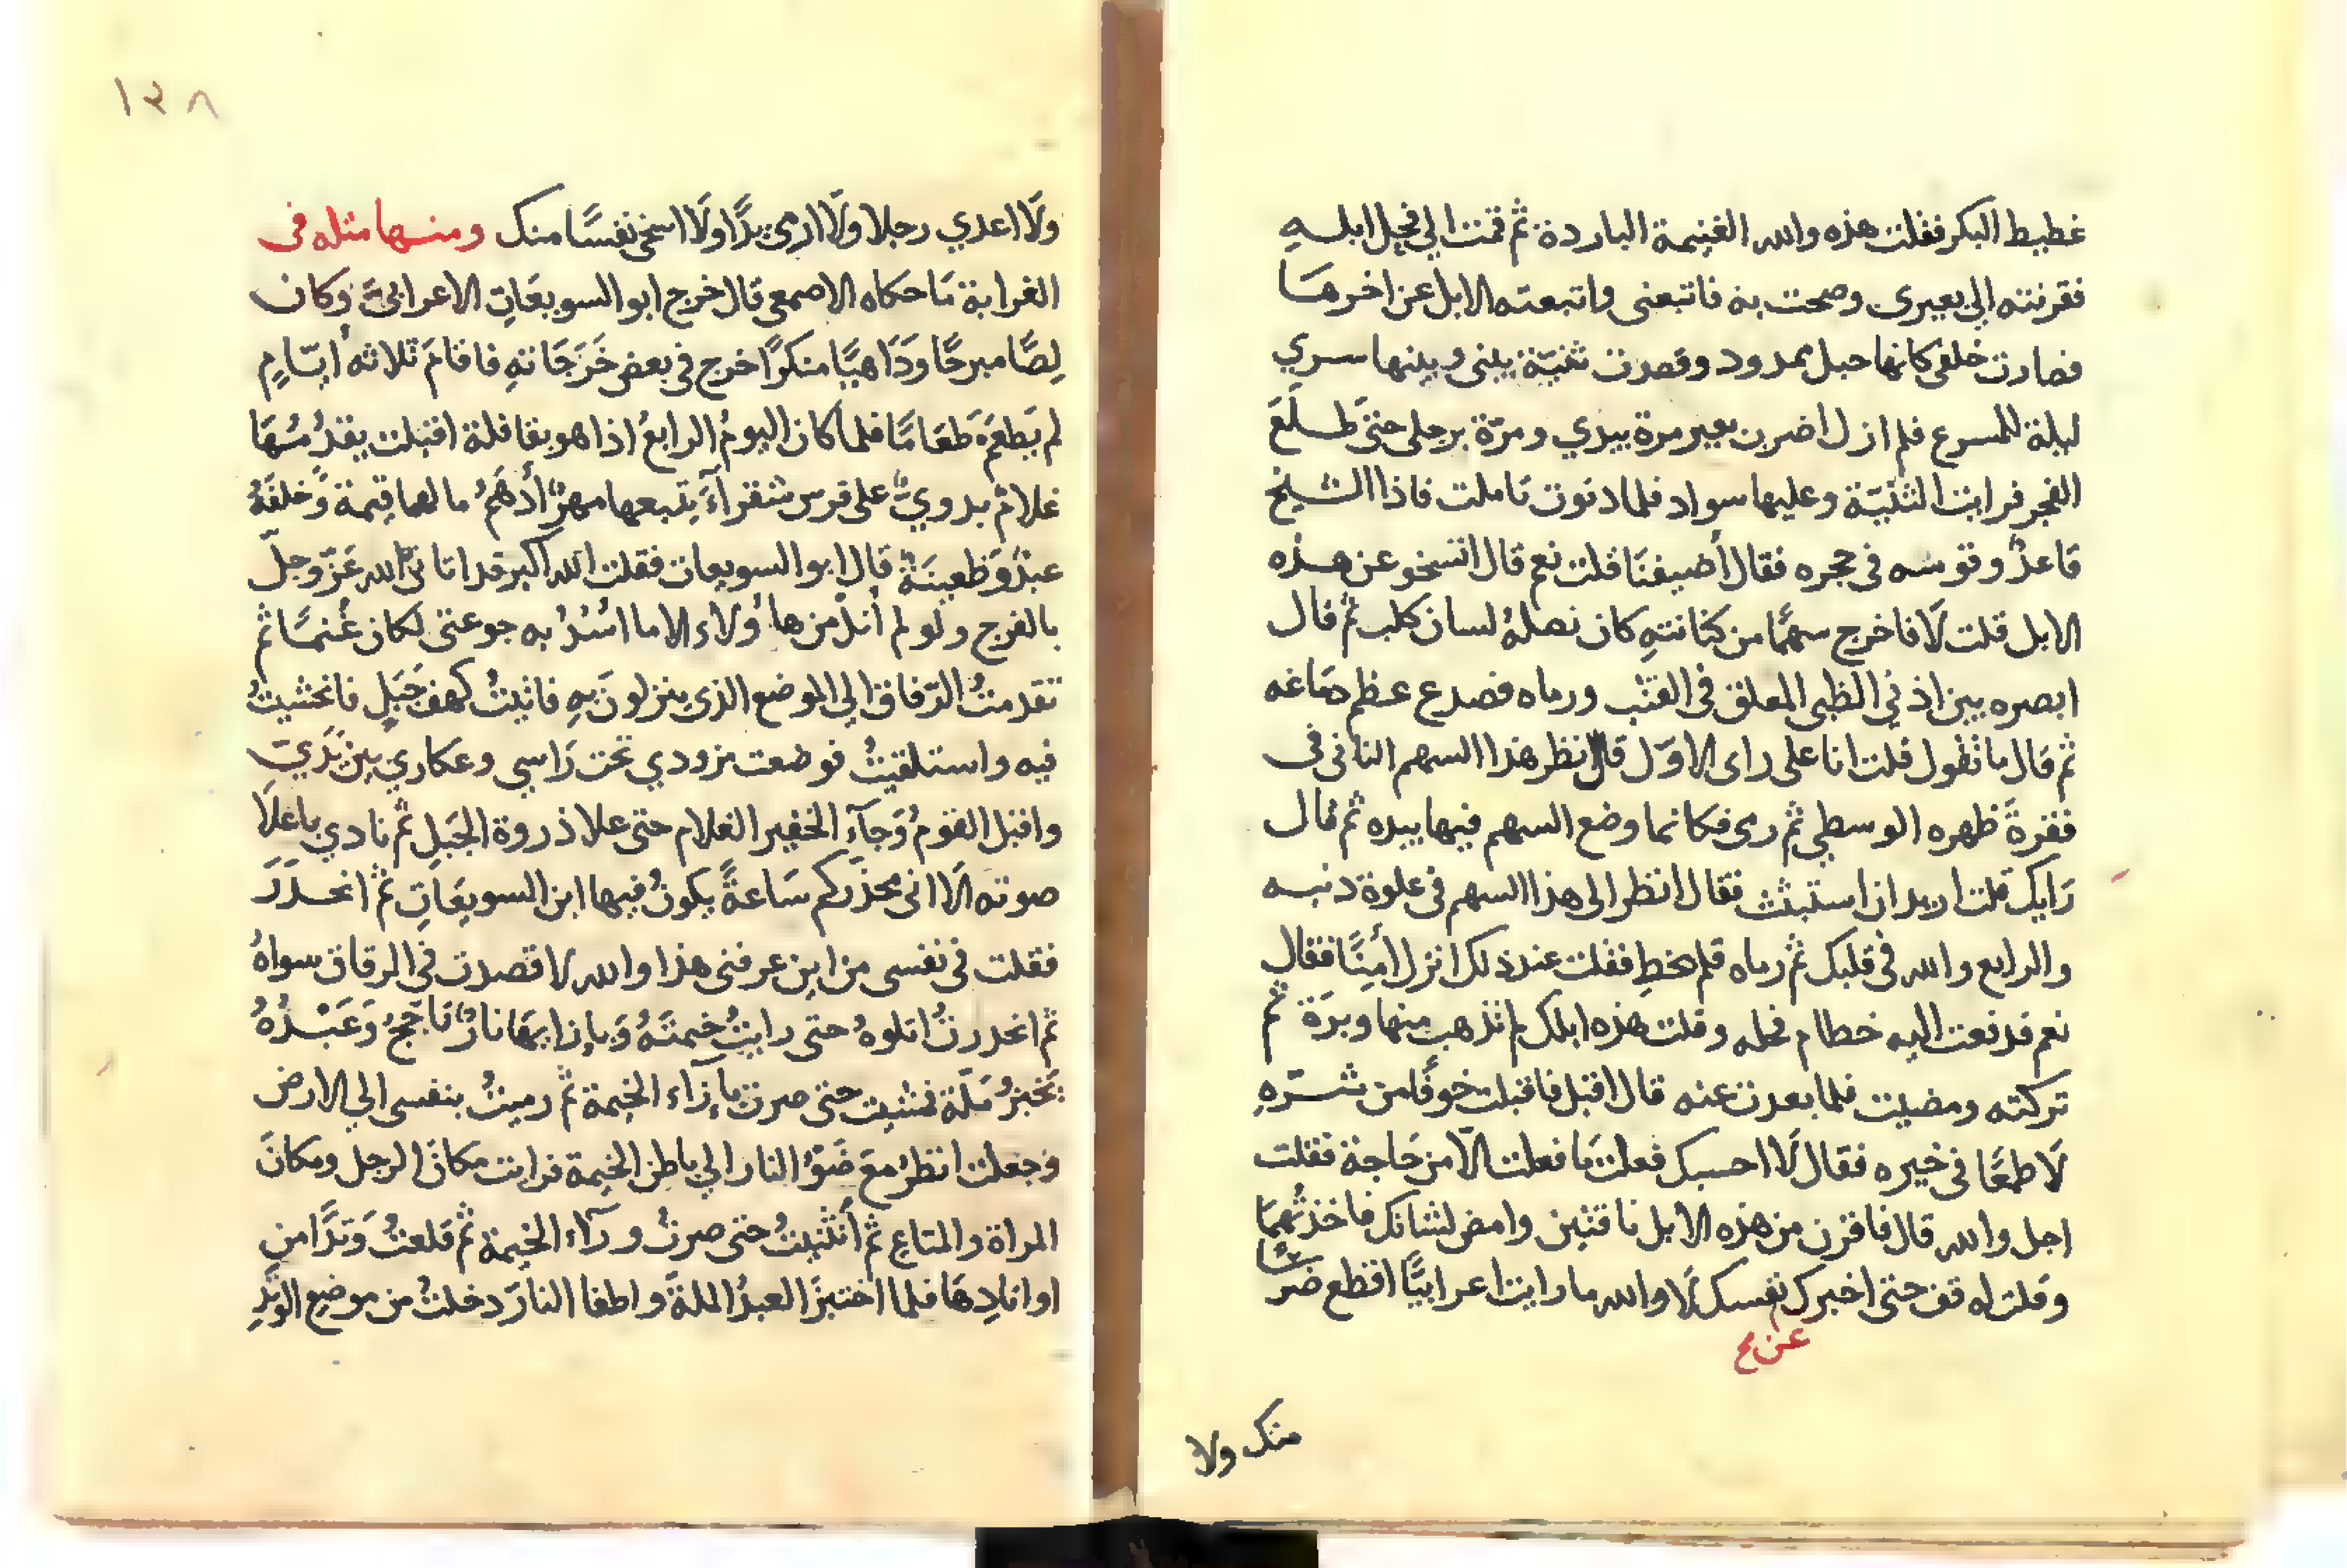 غطيط البكر فقلت هذه والله الغنيمة الباردة ثم قمت الي فحل ابله
فقرنته الي بعيرى وصحت به فاتبعنى واتبعته الابل عن اخرها
فصارت خلفى كانها حبل ممدود وقصدت ثنيّة بينى وبينها سري
ليلة للمسرع فلم ازل اضرب بعير مرة بيدي ومرّة برجلى حتى طلع
الفجر فرايت الثنيّة وعليها سواد فلما دنوت تاملت فاذا الشيخ
قاعدٌ وقوسه فى حجره فقال أضيفنا قلت نعم قال اتسخو عن هذه
الابل قلت لا فاخرج سهمًا من كنانتهِ كان نصلهُ لسان كلب ثم قال
ابصره بين اذني الظبى المعلق فى القتب ورماه فصدع عظم دماغه
ثم قال ما تقول قلت انا على راى الاوّل قال انظر هذا السهم الثانى فى
فقرة ظهره الوسطي ثم رمى فكانما وضع السهم فيها بيده ثم قال
رايك قلت اريد ان استثبت فقال انظر الى هذا السهم فى علوة ذنبه
والرابع والله فى قلبك ثم رماه فلم يخطِ فقلت عند ذلك انزل أمِنًا فقال
نعم فدفعت اليه خطام فحله وقلت هذه ابلك لم تذهب منها وبرَة ثم
تركته ومضيت فلما بعدت عنه قال اقبل فاقبلت خوفًا من شرّهِ
لا طمعًا فى خيره فقال لا احسبك فعلت ما فعلت الّا من حَاجة فقلت
اجل والله قال فاقرن من هذه الابل ناقتين وامض لشانك فاخذتُهما
وقلت له قف حتى اخبرك نفسك لا والله ما رايت اعرابيًّا اقطع ضرسًا
عن ع
منك ولا
١٣٨
ولا اعدي رجلا ولا ارمى يدًا ولا اسخى نفسًا منك ومنها مثله فى
الغرابة مَا حكاه الاصمعى قال خرج ابو السويعَاتِ الاعرابىّ وكان
لِصًّا مبرحًا وَدَاهيًا منكرًا خرج فى بعض خَرَجَاتهِ فاقامَ ثلاثه أيّامٍ
لم يَطعَم طعَامًا فلما كان اليومُ الرابعُ اذا هو بقافلة اقبلت يقدُمُهَا
غلامٌ بدويٌّ على فرس شقرآءَ يتبعها مهرٌ أدهَمُ ما لهما قيمة وخلفَهُ
عبدٌ وَظعينَةٌ قال ابو السويعات فقلت الله اكبر قد اتانى الله عَزّ وجلّ
بالفرج ولو لم أنل من هاؤلاء الا ما اسُدُ به جوعتى لكان غُنمًا ثم
تقدمتُ الرّفاق الي الموضع الذى ينزلونَ بهِ فاتيتُ كهفَ جَبَلٍ فانحشيتُ
فيه واستلقيتُ فوضعت مزودي تحت رَاسي وعكاري بين يَدَيّ
واقبل القومُ وَجآء الخفير الغلام حتى علا ذروة الجَبَلِ ثم نادي باعلا
صوته الَا انى محذّركم سَاعةً يكونُ فيها ابن السويعَاتِ ثم انحدَرَ
فقلت فى نفسى من اين عرفنى هذا والله لا قصدت فى الرقاق سواهُ
ثم انحدرتُ اتلوهُ حتى رايتُ خيمتَهُ وَبإزايهَا نارٌ تاجّجُ وَعَبْدُهُ
يَخبزُ مَلّة فمشيت حتى صرت بإزآء الخيمة ثم رميتُ بنفسى الي الارض
وجعلت انظرُ معَ ضَوْ النار الي باطن الخيمة فرايت مكان الرجل ومكانَ
المراة والمتاع ثم أنثنيتُ حتى صرتُ ورآء الخيمة ثم قلعتُ وَتدًا من
اوتادِهَا فلما اختبزَ العبدُ الملةَ واطفا النارَ دخلتُ من موضع الوتَدِ